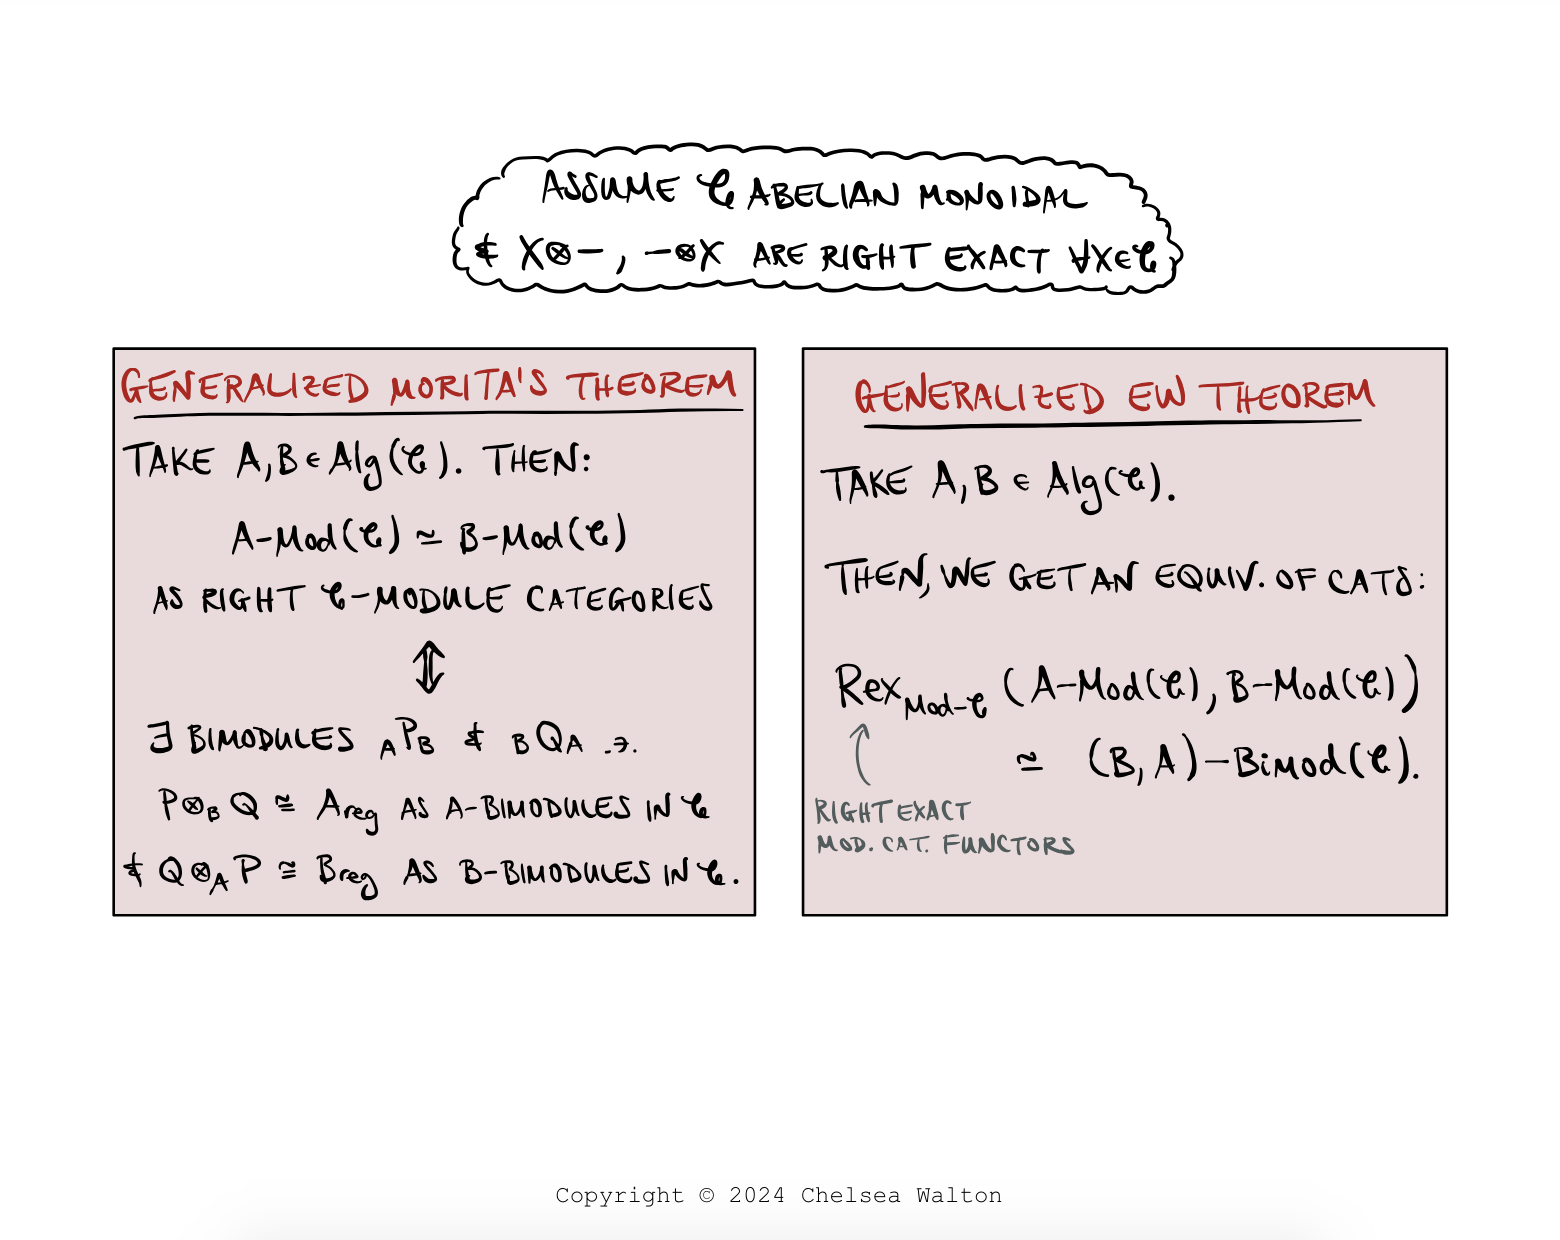 ASSUME 𝒞 ABELIAN MONOIDAL
& X⊗−, −⊗X ARE RIGHT EXACT ∀X∈𝒞
GENERALIZED MORITA'S THEOREM
TAKE A,B ∈ Alg(𝒞). THEN:
A-Mod(𝒞) ≃ B-Mod(𝒞)
AS RIGHT 𝒞-MODULE CATEGORIES
⇕
∃ BIMODULES ₐP_B & _BQ_A .⋺.
P⊗_B Q ≅ A_reg AS A-BIMODULES IN 𝒞
& Q⊗_A P ≅ B_reg AS B-BIMODULES IN 𝒞.
GENERALIZED EW THEOREM
TAKE A,B ∈ Alg(𝒞).
THEN, WE GET AN EQUIV. OF CATS:
Rex_Mod-𝒞 (A-Mod(𝒞), B-Mod(𝒞))
≃ (B,A)-Bimod(𝒞).
RIGHT EXACT
MOD. CAT. FUNCTORS
Copyright © 2024 Chelsea Walton